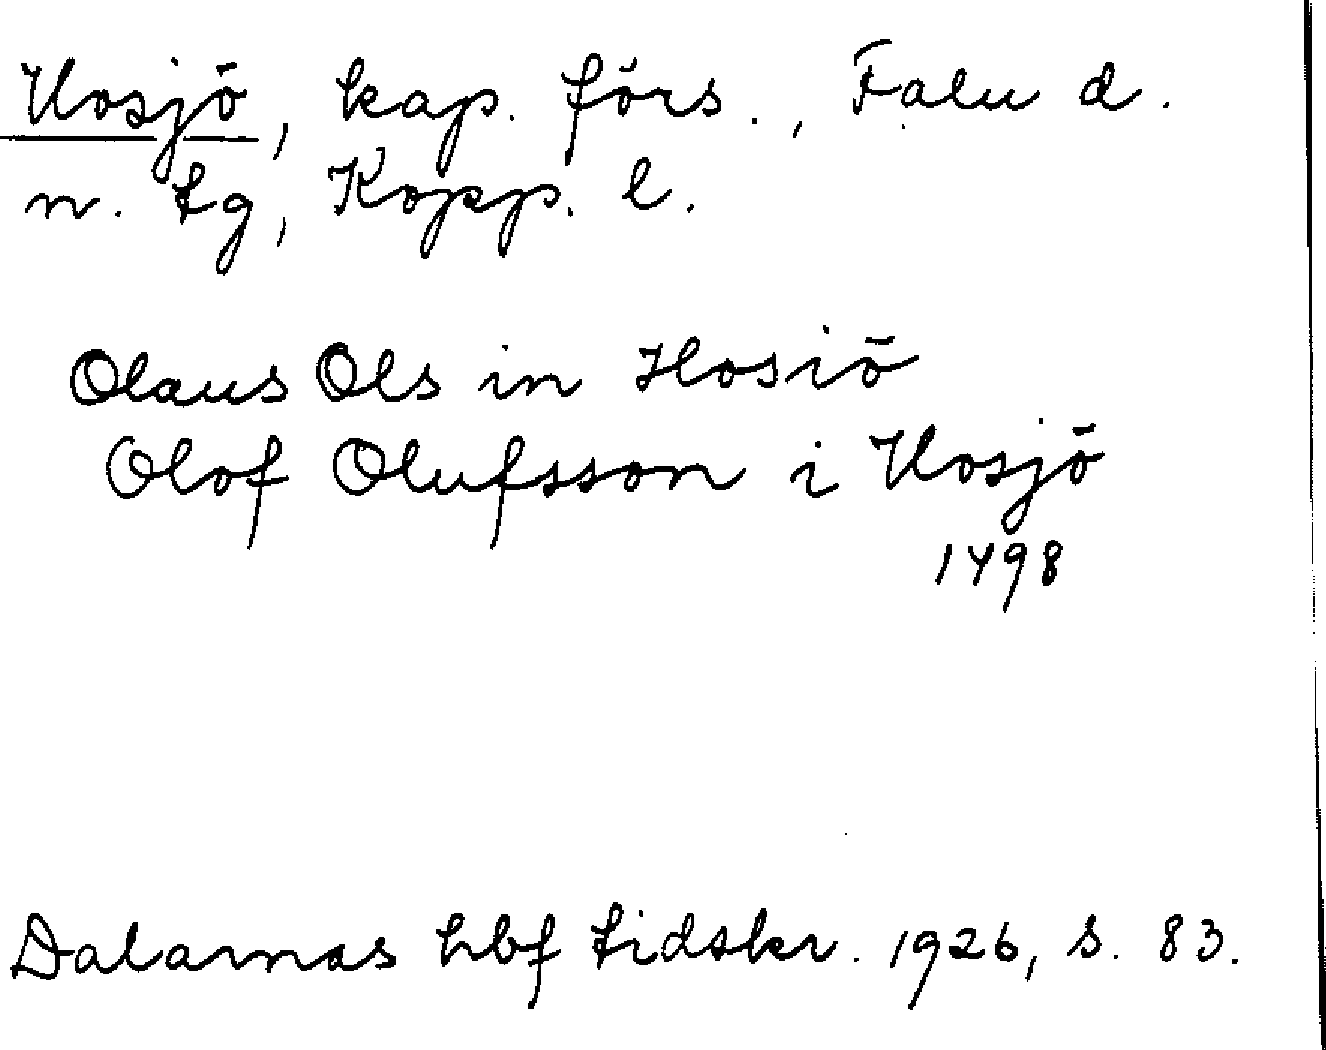 Hosjö, kap. förs., Falu d.
n. tg, Kopp. l.
Olaus Ols in Hosiö
Olof Olufsson i Hosjö
1498
Dalarnas hbf tidskr. 1926, s. 83.